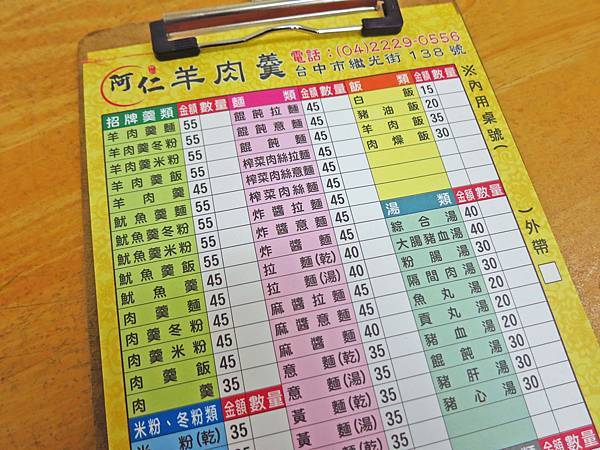 阿仁羊肉羹
電話：(04)2229-0556
台中市繼光街 138 號
※內用桌號（ ）
外帶
招牌羹類 金額 數量
羊肉羹麵 55
羊肉羹冬粉 55
羊肉羹米粉 55
羊肉羹飯 55
羊肉羹 45
魷魚羹麵 55
魷魚羹冬粉 55
魷魚羹米粉 55
魷魚羹飯 55
魷魚羹 45
肉羹麵 45
肉羹冬粉 45
肉羹米粉 45
肉羹飯 45
肉羹 35
米粉、冬粉類 金額 數量
米粉(乾) 35
麵類 金額 數量
餛飩拉麵 45
餛飩意麵 45
餛飩麵
榨菜肉絲拉麵 45
榨菜肉絲意麵 45
榨菜肉絲麵
炸醬拉麵 45
炸醬意麵 45
炸醬麵
拉麵(乾) 40
拉麵(湯) 40
麻醬拉麵 45
麻醬意麵 45
麻醬麵 40
意麵(乾) 35
意麵(湯) 35
黃麵(乾) 35
黃麵(湯) 35
飯類 金額 數量
白飯 15
豬油飯 20
羊肉飯 35
肉燥飯 30
湯類 金額 數量
綜合湯 40
大腸豬血湯 40
粉腸湯 30
隔間肉湯 30
魚丸湯 20
貢丸湯 20
豬血湯 20
餛飩湯 30
豬肝湯 30
豬心湯 30